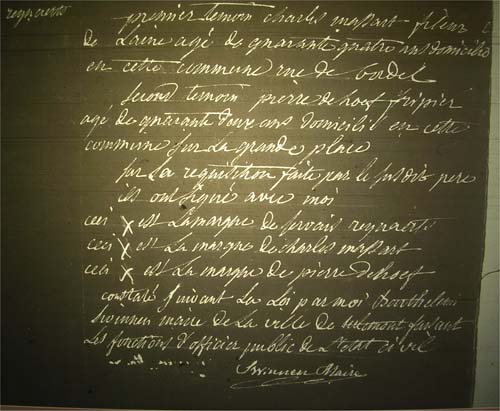 reynaerts
premier temoin charles massart fileur
de Laine agé de quarante quatre ans domicilié
en cette commune rue de bordel
second temoin pierre dehoef fripier
agé de quarante deux ans domicilié en cette
commune sur La grande place
sur La requisition faite par le susdis pere
ils ont signé avec moi
ceci X est Lamarque de servais reynaerts
ceci X est La marque de charles massart
ceci X est La marque de pierre dehoef
constaté suivant La Loi par moi Barthelemi
Swinnen maire de La ville de tirlemont faisant
Les fonctions d'officier public de L'etat civil
Swinnen Maire